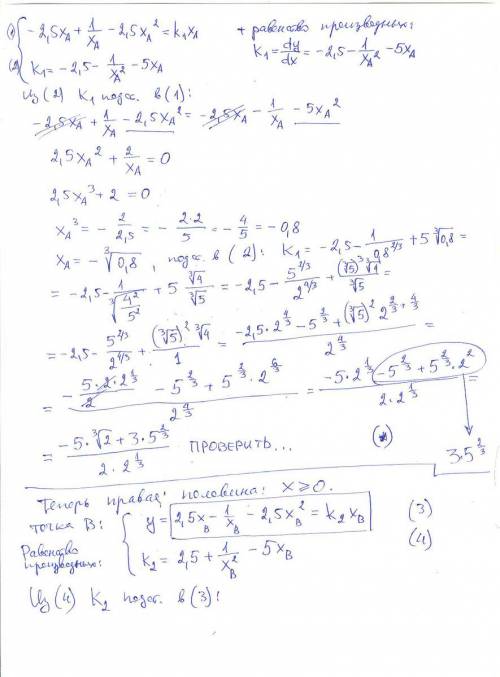 (1) { -2,5x_A + 1/x_A - 2,5x_A² = k₁x_A + равенство производных:
(2) k₁ = -2,5 - 1/x_A² - 5x_A k₁ = dy/dx = -2,5 - 1/x_A² - 5x_A
Из (2) k₁ подст. в (1):
-2,5x_A + 1/x_A - 2,5x_A² = -2,5x_A - 1/x_A - 5x_A²
2,5x_A² + 2/x_A = 0
2,5x_A³ + 2 = 0
x_A³ = - 2/2,5 = - 2·2/5 = - 4/5 = -0,8
x_A = -∛0,8 , подст. в (2): k₁ = -2,5 - 1/0,8^(2/3) + 5∛0,8 =
= -2,5 - 1/∛(4²/5²) + 5 ∛4/∛5 = -2,5 - 5^(2/3)/2^(4/3) + (∛5)³∛4/∛5 =
= -2,5 - 5^(2/3)/2^(4/3) + (∛5)²∛4/1 = (-2,5·2^(4/3) - 5^(2/3) + (∛5)² 2^(2/3 + 4/3))/2^(4/3) =
= (- 5·2·2^(1/3)/2 - 5^(2/3) + 5^(2/3)·2^(6/3))/2^(4/3) = (-5·2^(1/3) - 5^(2/3) + 5^(2/3)·2²)/(2·2^(1/3)) =
= (-5·∛2 + 3·5^(2/3))/(2·2^(1/3)) ПРОВЕРИТЬ... (*) 3·5^(2/3)
Теперь правая половина: x ⩾ 0.
точка B: { y = 2,5x_B - 1/x_B - 2,5x_B² = k₂x_B (3)
Равенство производных: k₂ = 2,5 + 1/x_B² - 5x_B (4)
Из (4) k₂ подст. в (3):